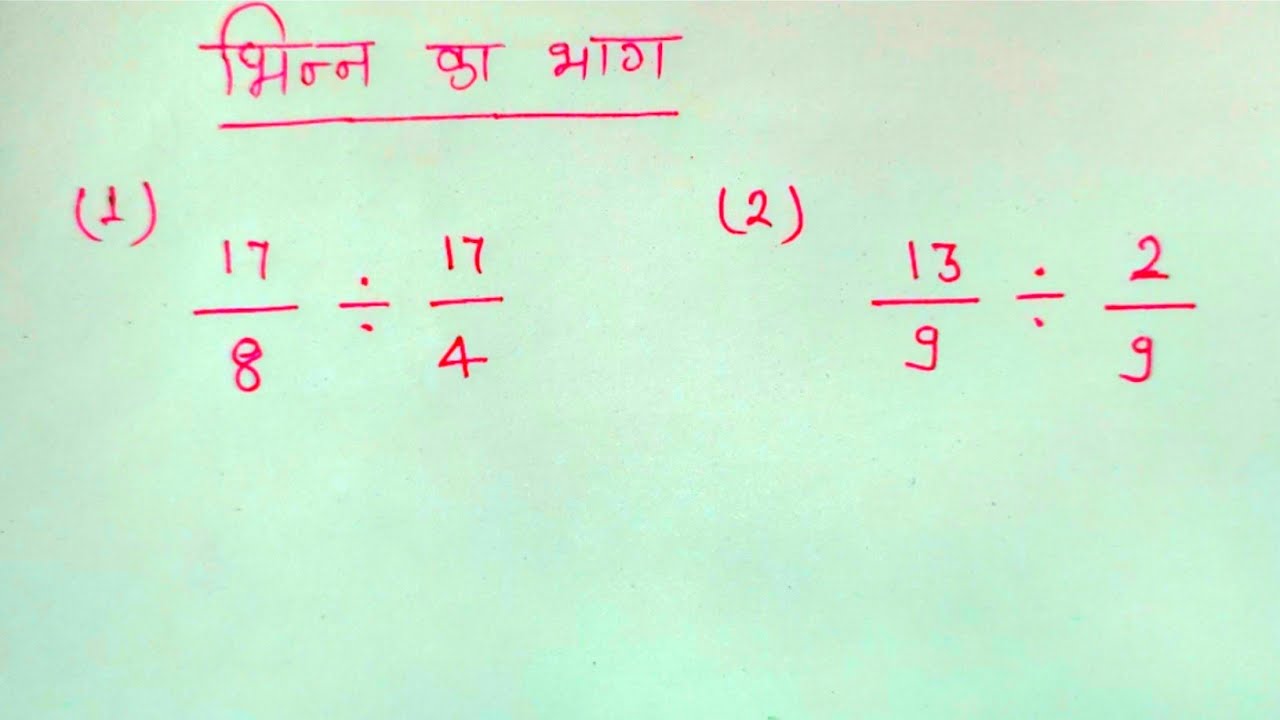 भिन्न का भाग
(1) 17/8 ÷ 17/4
(2) 13/9 ÷ 2/9